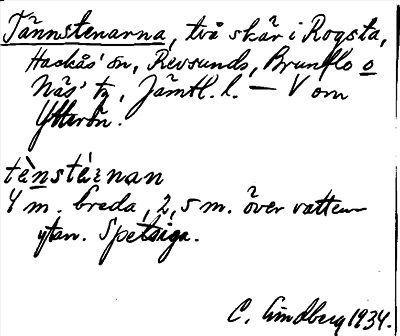 Tännstenarna, två skär i Rogsta,
Hackås' sn, Revsunds, Brunflo o
Näs' tg, Jämtl. l. — V om
Ytterön.
tènstèɪnan
4 m. breda, 2,5 m. över vatten
ytan. Spetsiga.
C. Lindberg 1934.